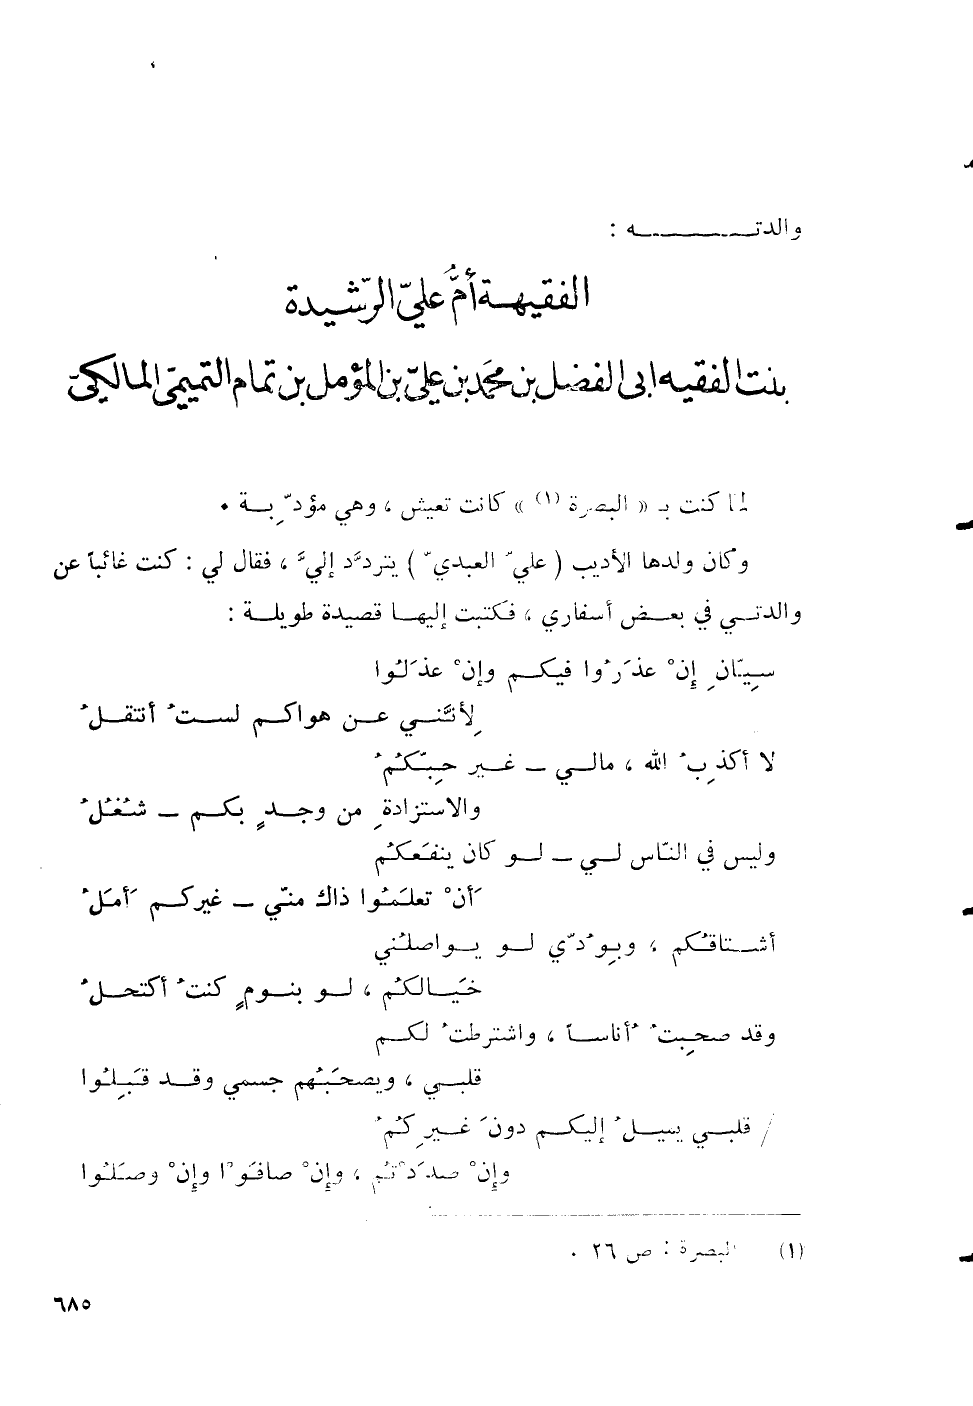 والدتـــــــــه :
الفقيهـة أمُّ عليّ الرّشيدة
بنت الفقيه ابى الفضل بن محمّد بن عليّ بن المؤمل بن تمام التميميّ المالكيّ
لما كنت بـ « البصرة (١) » كانت تعيش ، وهي مؤدِّبـة .
وكان ولدها الأديب ( عليّ العبديّ ) يتردَّد إليَّ ، فقال لي : كنت غائباً عن
والدتـي في بعـض أسفاري ، فكتبت إليهـا قصيدة طويلـة :
سِيّانِ إِنْ عذَرُوا فيكـم وإنْ عذَلُوا
لِأَنَّنـي عـن هواكـم لسـتُ أنتقـلُ
لا أكذِبُ الله ، مالـي ــ غـير حِبّكُمُ
والاستزادةِ من وجـدٍ بكـم ــ شُغُلُ
وليس في النّاس لـي ــ لـو كان ينفَعكُم
أَنْ تعلَمُوا ذاك منّي ــ غيركـم أَمَلُ
أشـتاقُكم ، وبِوُدّي لـو يـواصلُني
خَيـالكُم ، لـو بنـومٍ كنتُ أكتحـلُ
وقد صحِبتُ أُناسـاً ، واشترطتُ لكـم
قلبـي ، ويصحَبُهم جسمي وقـد قَبِلُوا
/ قلبـي يميـلُ إليكـم دونَ غـيرِكُمُ
وإِنْ صدَدْتُم ، وإنْ صافَوْا وإنْ وصَلُوا
(١) البصرة : ص ٢٦ .
٦٨٥